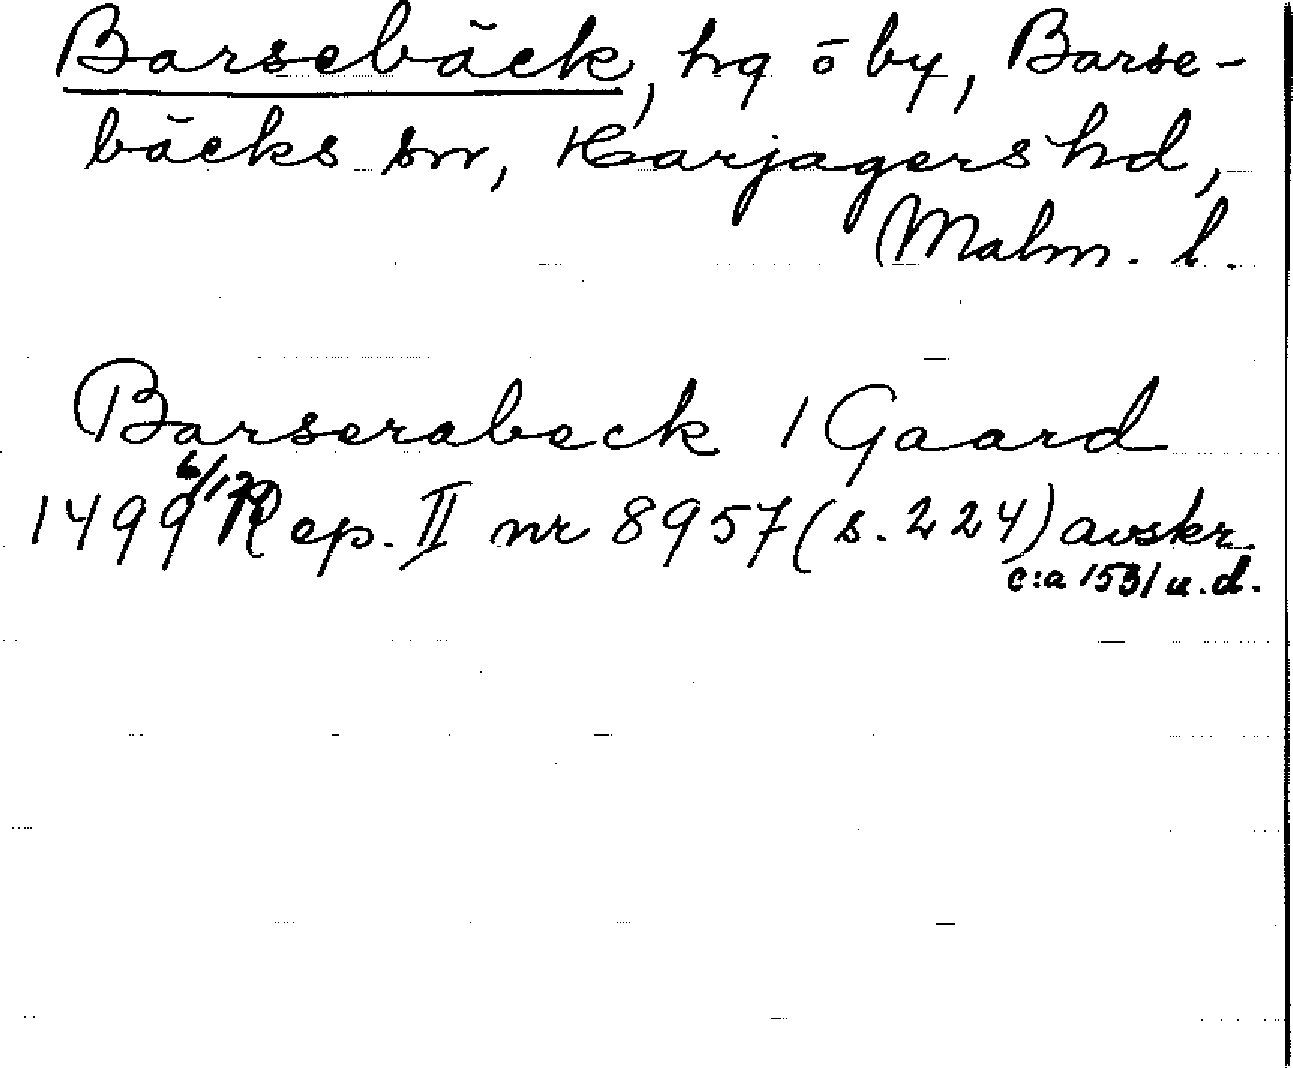 Barsebäck, hg o by, Barse-
bäcks sn, Harjagers hd,
Malm. l.
Barserabeck 1 Gaard
1499 6/12 Rep. II nr 8957 (s. 224) avskr.
c:a 1531 u.d.